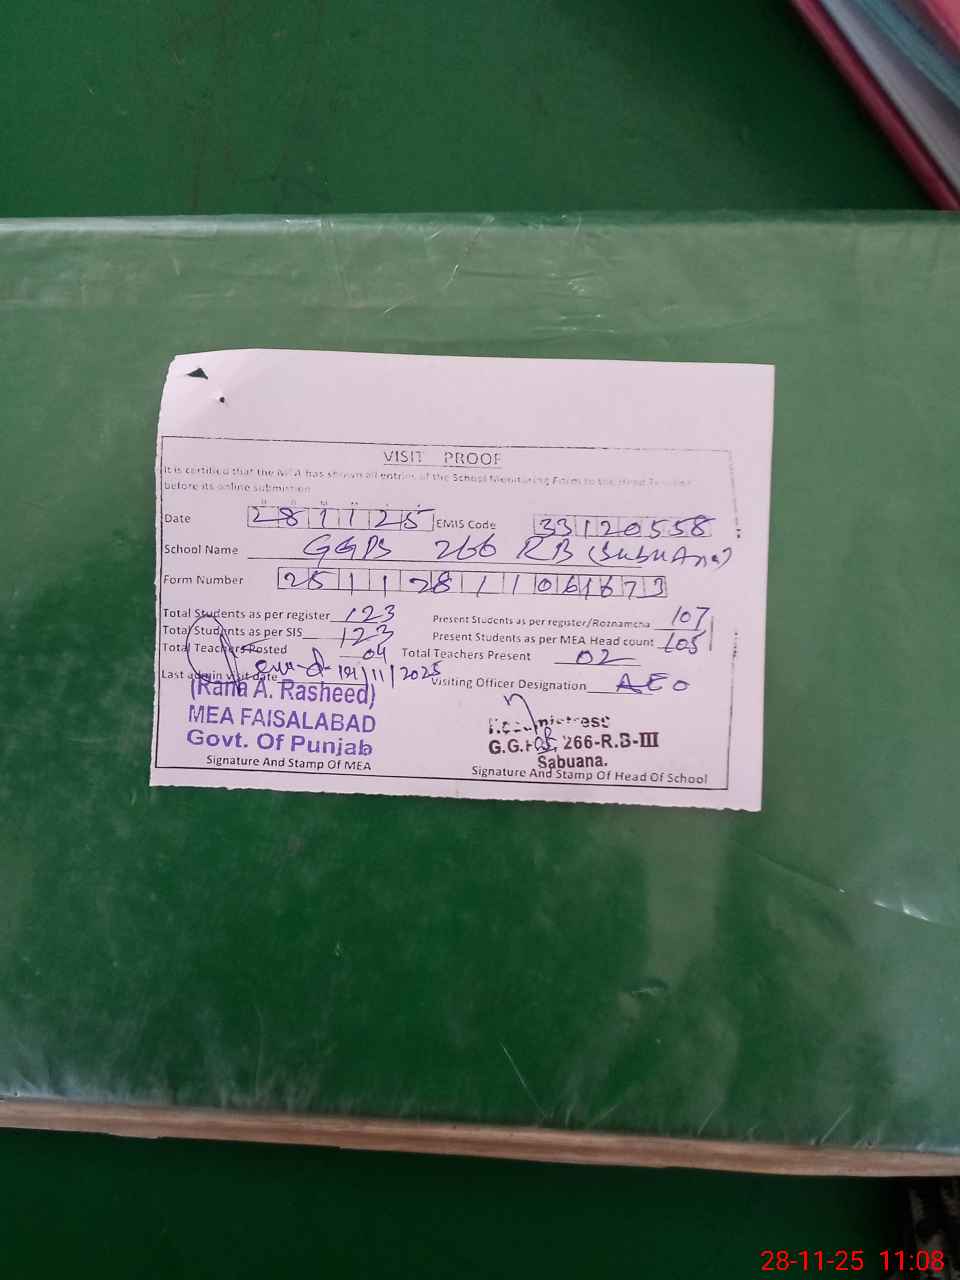 VISIT PROOF
It is certified that the MEA has shown all entries of the School Monitoring Form to the Head Teacher
before its online submission
Date 281125 EMIS Code 33120558
School Name GGPS 266 RB (Sabuana)
Form Number 25112811061673
Total Students as per register 123 Present Students as per register/Roznamcha 107
Total Students as per SIS 123 Present Students as per MEA Head count 105
Total Teachers Posted 04 Total Teachers Present 02
Last admin visit date /11/2025 Visiting Officer Designation AEO
(Rana A. Rasheed)
MEA FAISALABAD
Govt. Of Punjab
Signature And Stamp Of MEA
G.G.P.S. 266-R.B-III
Sabuana.
Signature And Stamp Of Head Of School
28-11-25 11:08